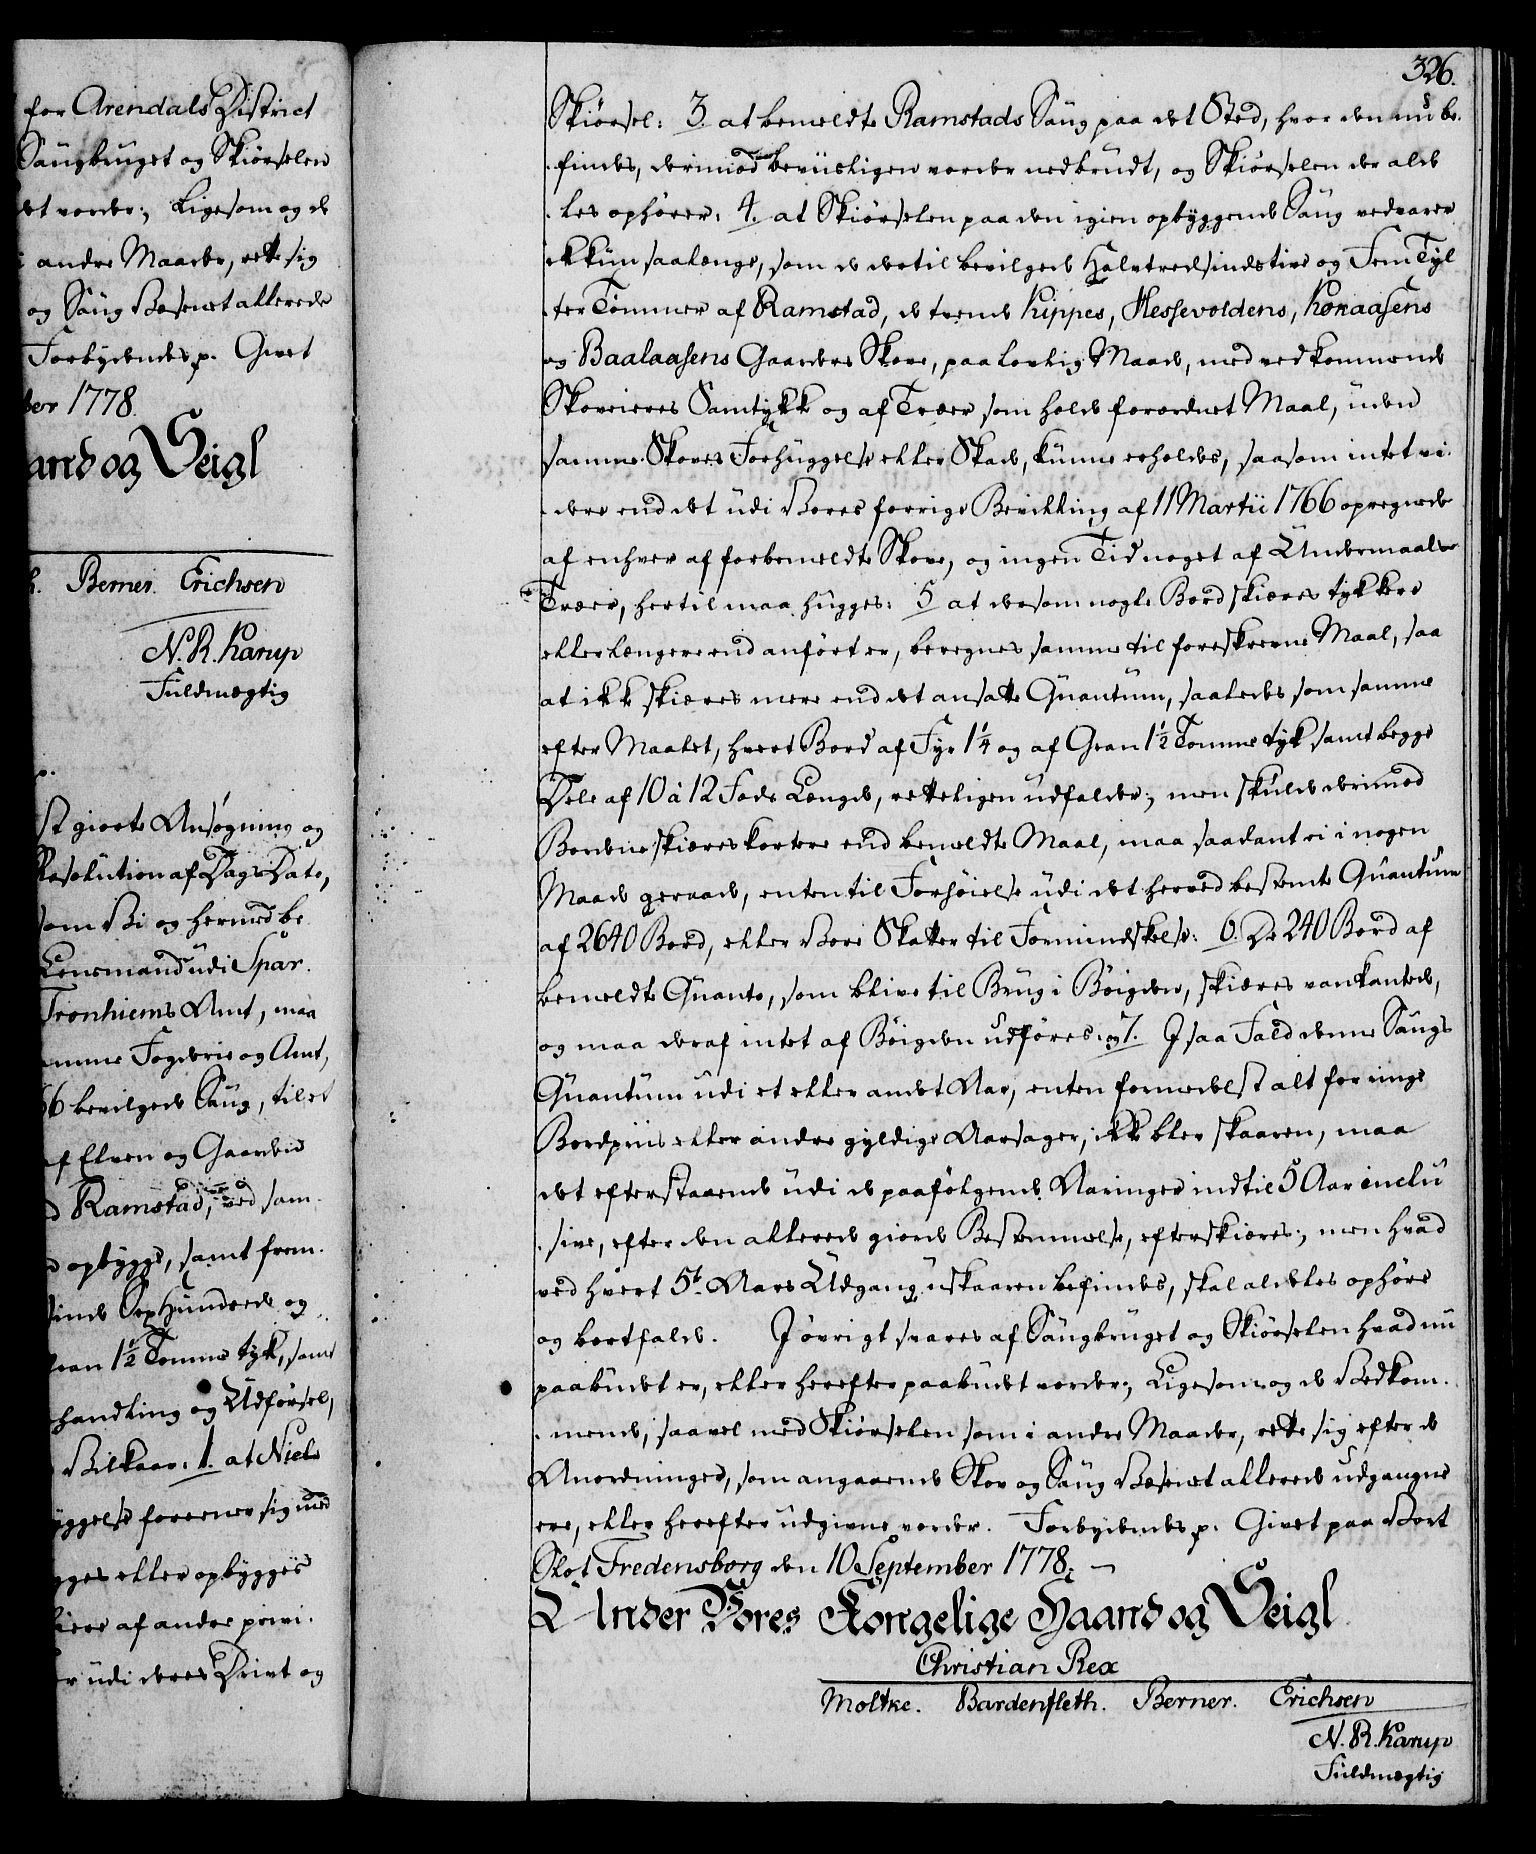 for Arendals District
Saugbruget og Skiørselen
det vorder; Ligesom og de
i andre Maader, rette sig
og Saug Væsenet allerede
Forbydendes p. Givet
ber 1778.
and og Seigl
h. Berner. Erichsen
N. R. Karup
Fuldmægtig
p.
st giorte Ansøgning og
Resolution af Dags Dato,
som Vi og hermed be
Lensmand udi Spar
Tronhiems Amt, maa
emme Fogderie og Amt,
66 bevilgede Saug, til et
af Elven og Gaarden
d Ramstad, ved sam
d opbygge, samt frem
sinde Sex Hundrede og
Gran 1½ Tomme tyk, samt
handling og Udførsel,
Vilkaar: 1. at Niels
yggelse foreener sig med
gges eller opbygges
kiere af andre privi
er udi deres Drivt og
326.
Skiørsel: 3. at bemeldte Ramstads Saug paa det Sted, hvor den nu be-
findes, derimod beviisligen vorder nedbrudt, og Skiørselen der alde
les ophører: 4. at Skiørselen paa den igien opbyggende Saug vedvarer
ikkun saalænge, som de dertil bevilgede Halvtredsindstive og Fem Tyl
ter Tømmer af Ramstad, de tvende Kippes, Hessevoldens, Koraasens
og Baalaasens Gaarders Skove, paa lovlig Maade, med vedkommende
Skoveieres Samtykke og af Træer som holde forordnet Maal, uden
samme Skoves Forhuggelse eller Skade, kunne erholdes, saasom intet vi-
dere end det udi Vores forrige Bevilling af 11 Martii 1766 opregnede
af enhver af forbemeldte Skove, og ingen Tid noget af Undermaals
Træer, hertil maa hugges: 5 at dersom nogle Bord skiæres tykkere
eller længere end anført er, beregnes samme til foreskrevne Maal, saa
at ikke skiæres mere end det ansatte Quantum, saaledes som samme
efter Maalet, hvert Bord af Fyr 1¼ og af Gran 1½ Tomme tyk samt begge
Dele af 10 à 12 Fods Længde, retteligen udfalder; men skulde derimod
Bordene skiæres kortere end bemeldte Maal, maa saadant ei i nogen
Maade geraade, enten til Forhøielse udi det herved bestemte Quantum
af 2640 Bord, eller Vore Skatter til Formindskelse: 6. De 240 Bord af
bemeldte Quanto, som blive til Brug i Bøigden, skiæres vankantede,
og maa deraf intet af Bøigden udføres. og 7. I saa Fald denne Saugs
Quantum udi et eller andet Aar, enten formedelst alt for ringe
Bordpriis eller andre gyldige Aarsager, ikke blev skaaren, maa
det efterstaaende udi de paafølgende Aaringer indtil 5 Aar inclu
sive, efter den allerede giorde Bestemmelse, efterskiæres; men hvad
ved hvert 5t Aars Udgang uskaaren befindes, skal aldeles ophøre
og bortfalde. I øvrigt svares af Saugbruget og Skiørselen hvad nu
paabudet er, eller herefter paabudet vorder; Ligesom og de Vedkom-
mende, saavel med Skiørselen som i andre Maader, rette sig efter de
Anordninger, som angaaende Skov og Saug Væsenet allerede udgangne
ere, eller herefter udgivne vorder. Forbydendes p. Givet paa Vort
Slot Fredensborg den 10 September 1778.
Under Vores Kongelige Haand og Seigl
Christian Rex
Moltke. Bardenfleth. Berner. Erichsen
N. R. Karup
Fuldmægtig